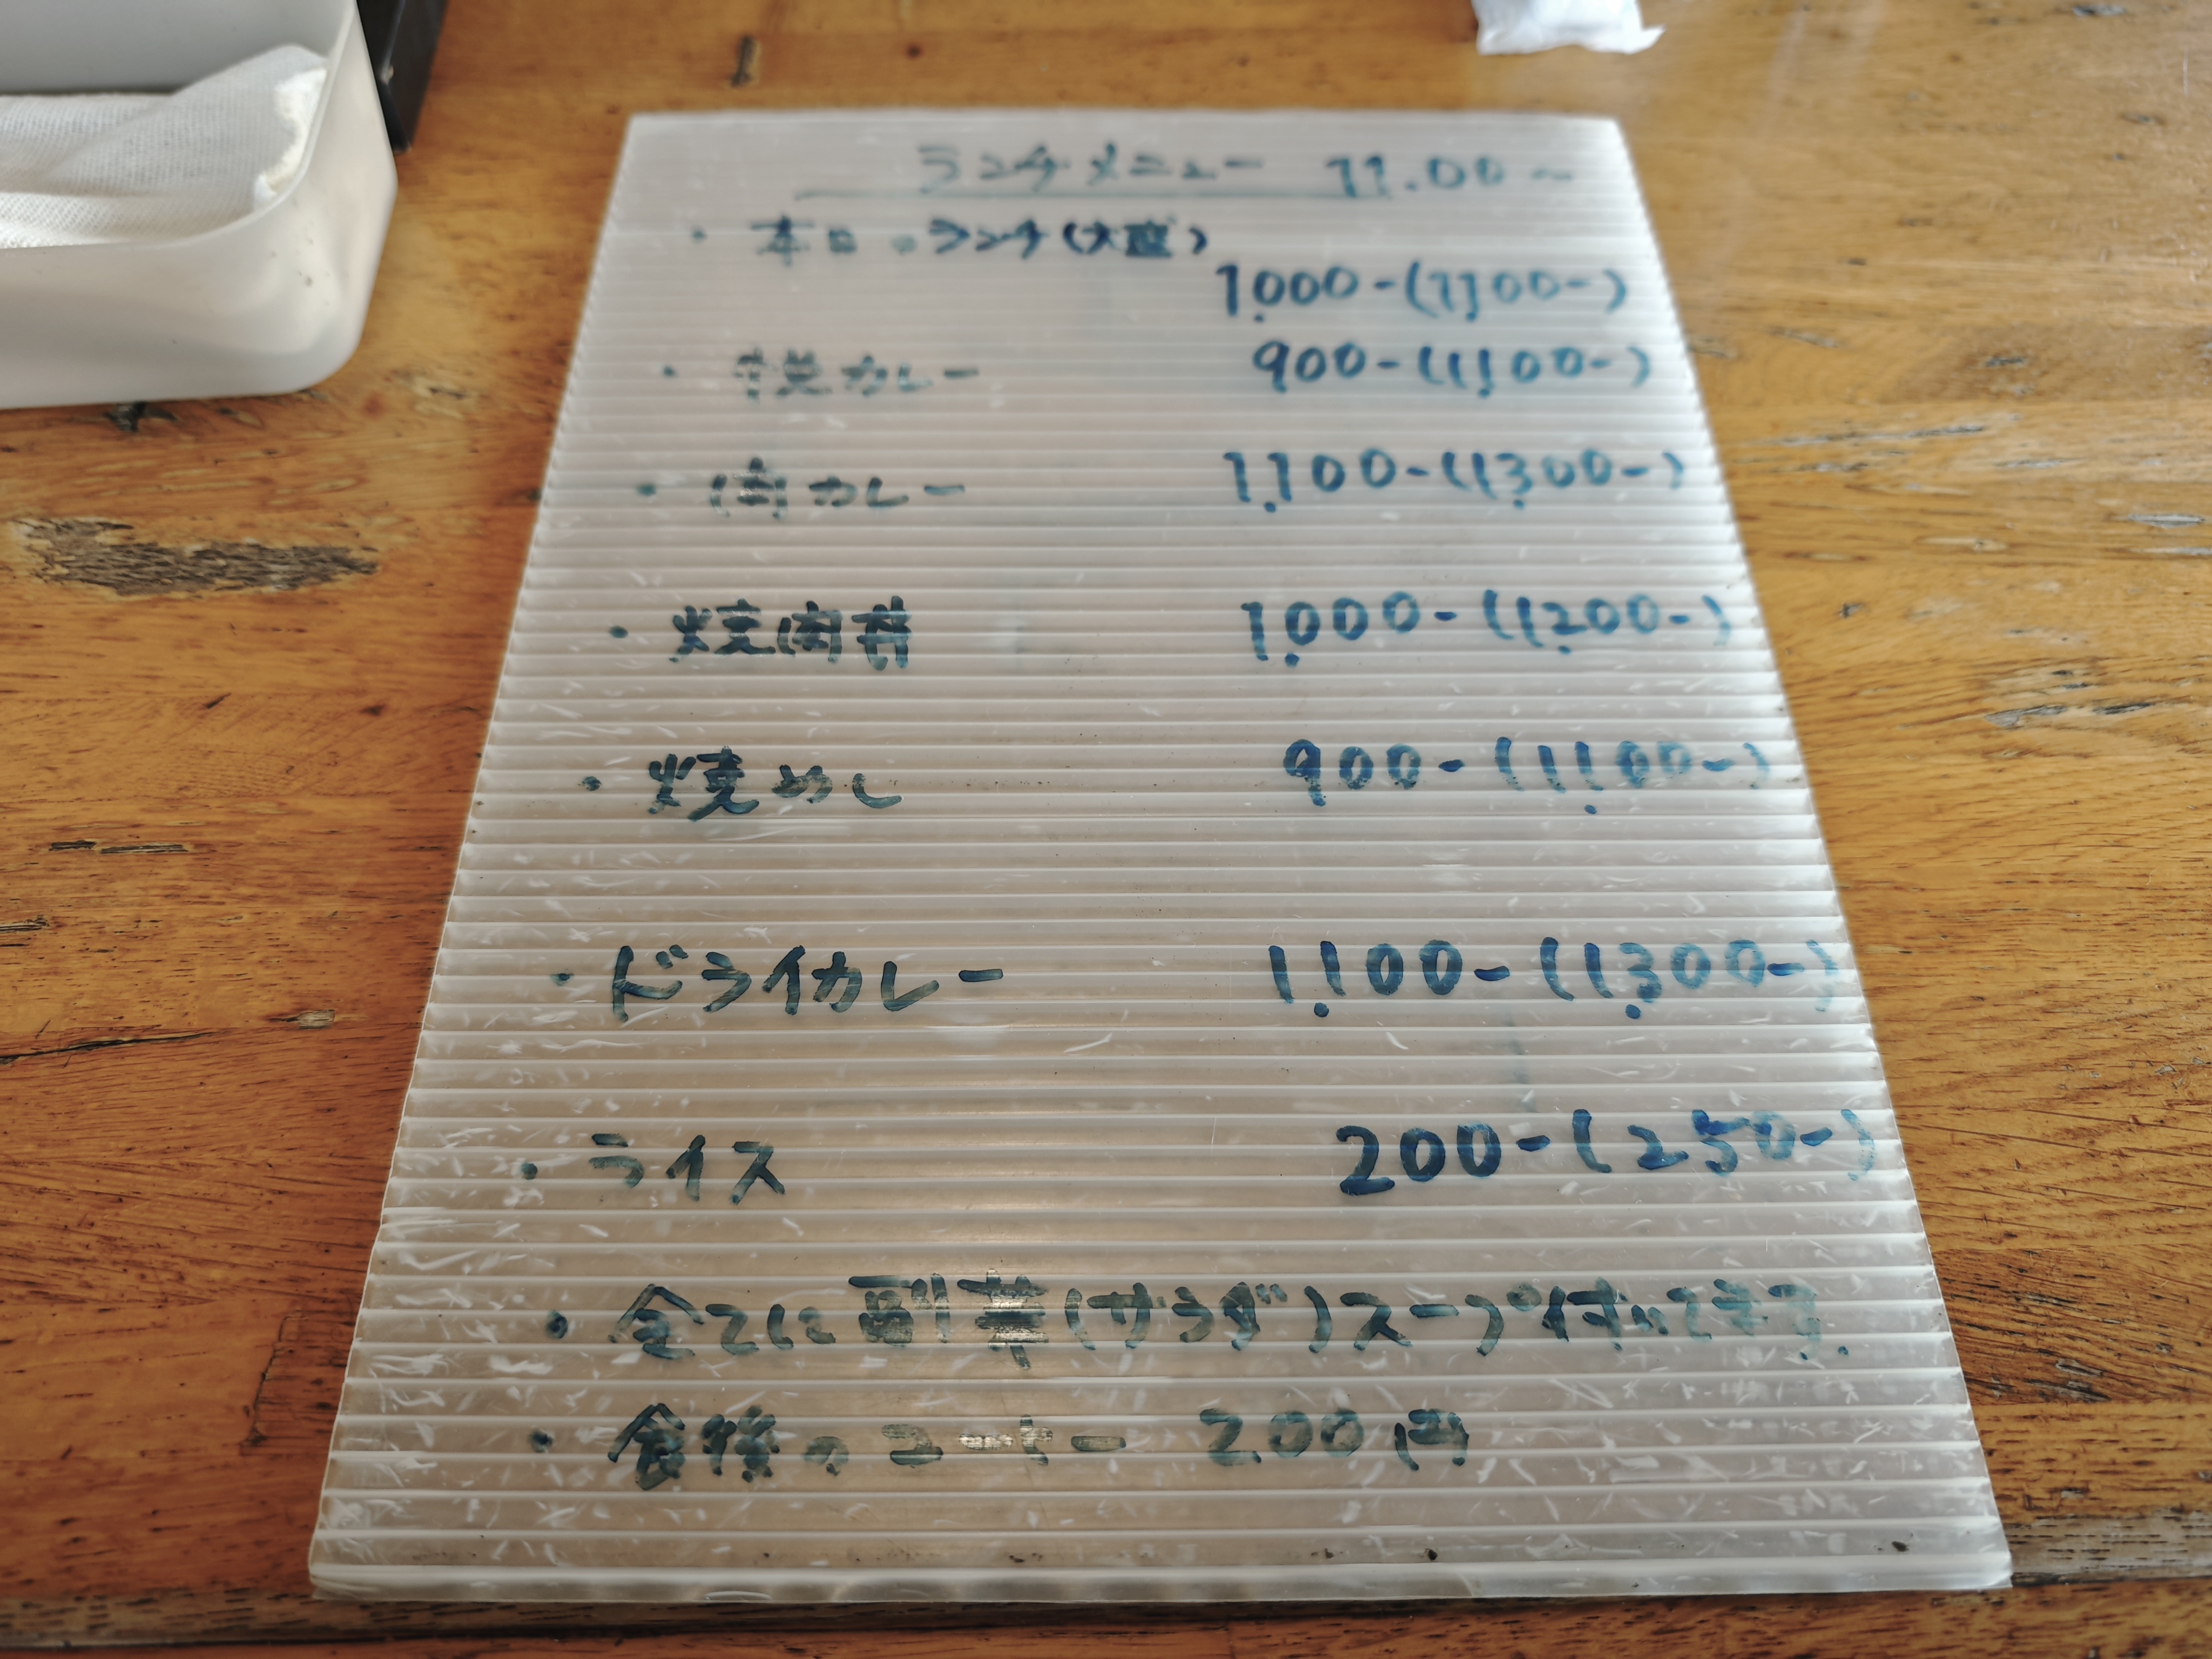 ランチメニュー 11.00～
・本日のランチ(大盛)
1,000-(1,100-)
・カレー 900-(1,100-)
・肉カレー 1,100-(1,300-)
・焼肉丼 1,000-(1,200-)
・焼めし 900-(1,100-)
・ドライカレー 1,100-(1,300-)
・ライス 200-(250-)
・全てに副菜(サラダ)スープ付いてます.
・食後のコーヒー 200円